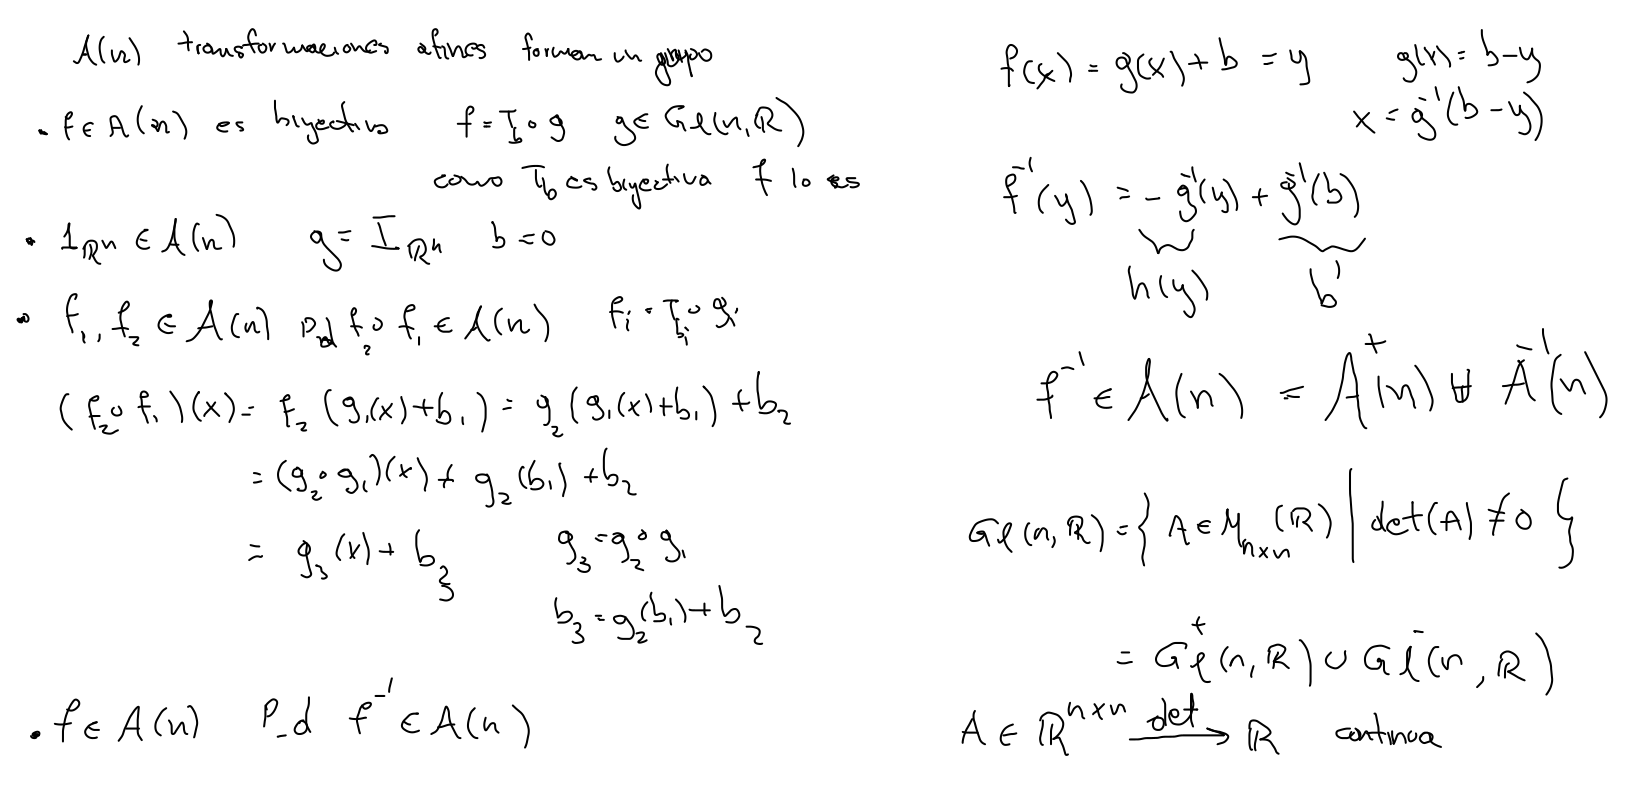 A(n) transformaciones afines forman un grupo
• f ∈ A(n) es biyectiva f = T_b ∘ g g ∈ Gl(n, ℝ)
como T_b es biyectiva f lo es
• 1_{ℝⁿ} ∈ A(n) g = I_{ℝⁿ} b = 0
• f₁, f₂ ∈ A(n) P.d f₂ ∘ f₁ ∈ A(n) fᵢ = T_{bᵢ} ∘ gᵢ
(f₂ ∘ f₁)(x) = f₂(g₁(x) + b₁) = g₂(g₁(x) + b₁) + b₂
= (g₂ ∘ g₁)(x) + g₂(b₁) + b₂
= g₃(x) + b₃ g₃ = g₂ ∘ g₁
b₃ = g₂(b₁) + b₂
• f ∈ A(n) P_d f⁻¹ ∈ A(n)
f(x) = g(x) + b = y g(x) = b - y
x = g⁻¹(b - y)
f⁻¹(y) = - g⁻¹(y) + g⁻¹(b)
h(y) b'
f⁻¹ ∈ A(n) = A⁺(n) ⊎ A⁻¹(n)
Gl(n, ℝ) = { A ∈ M_{n×n}(ℝ) | det(A) ≠ 0 }
= Gl⁺(n, ℝ) ∪ Gl⁻(n, ℝ)
A ∈ ℝ^{n×n} —det→ ℝ continua